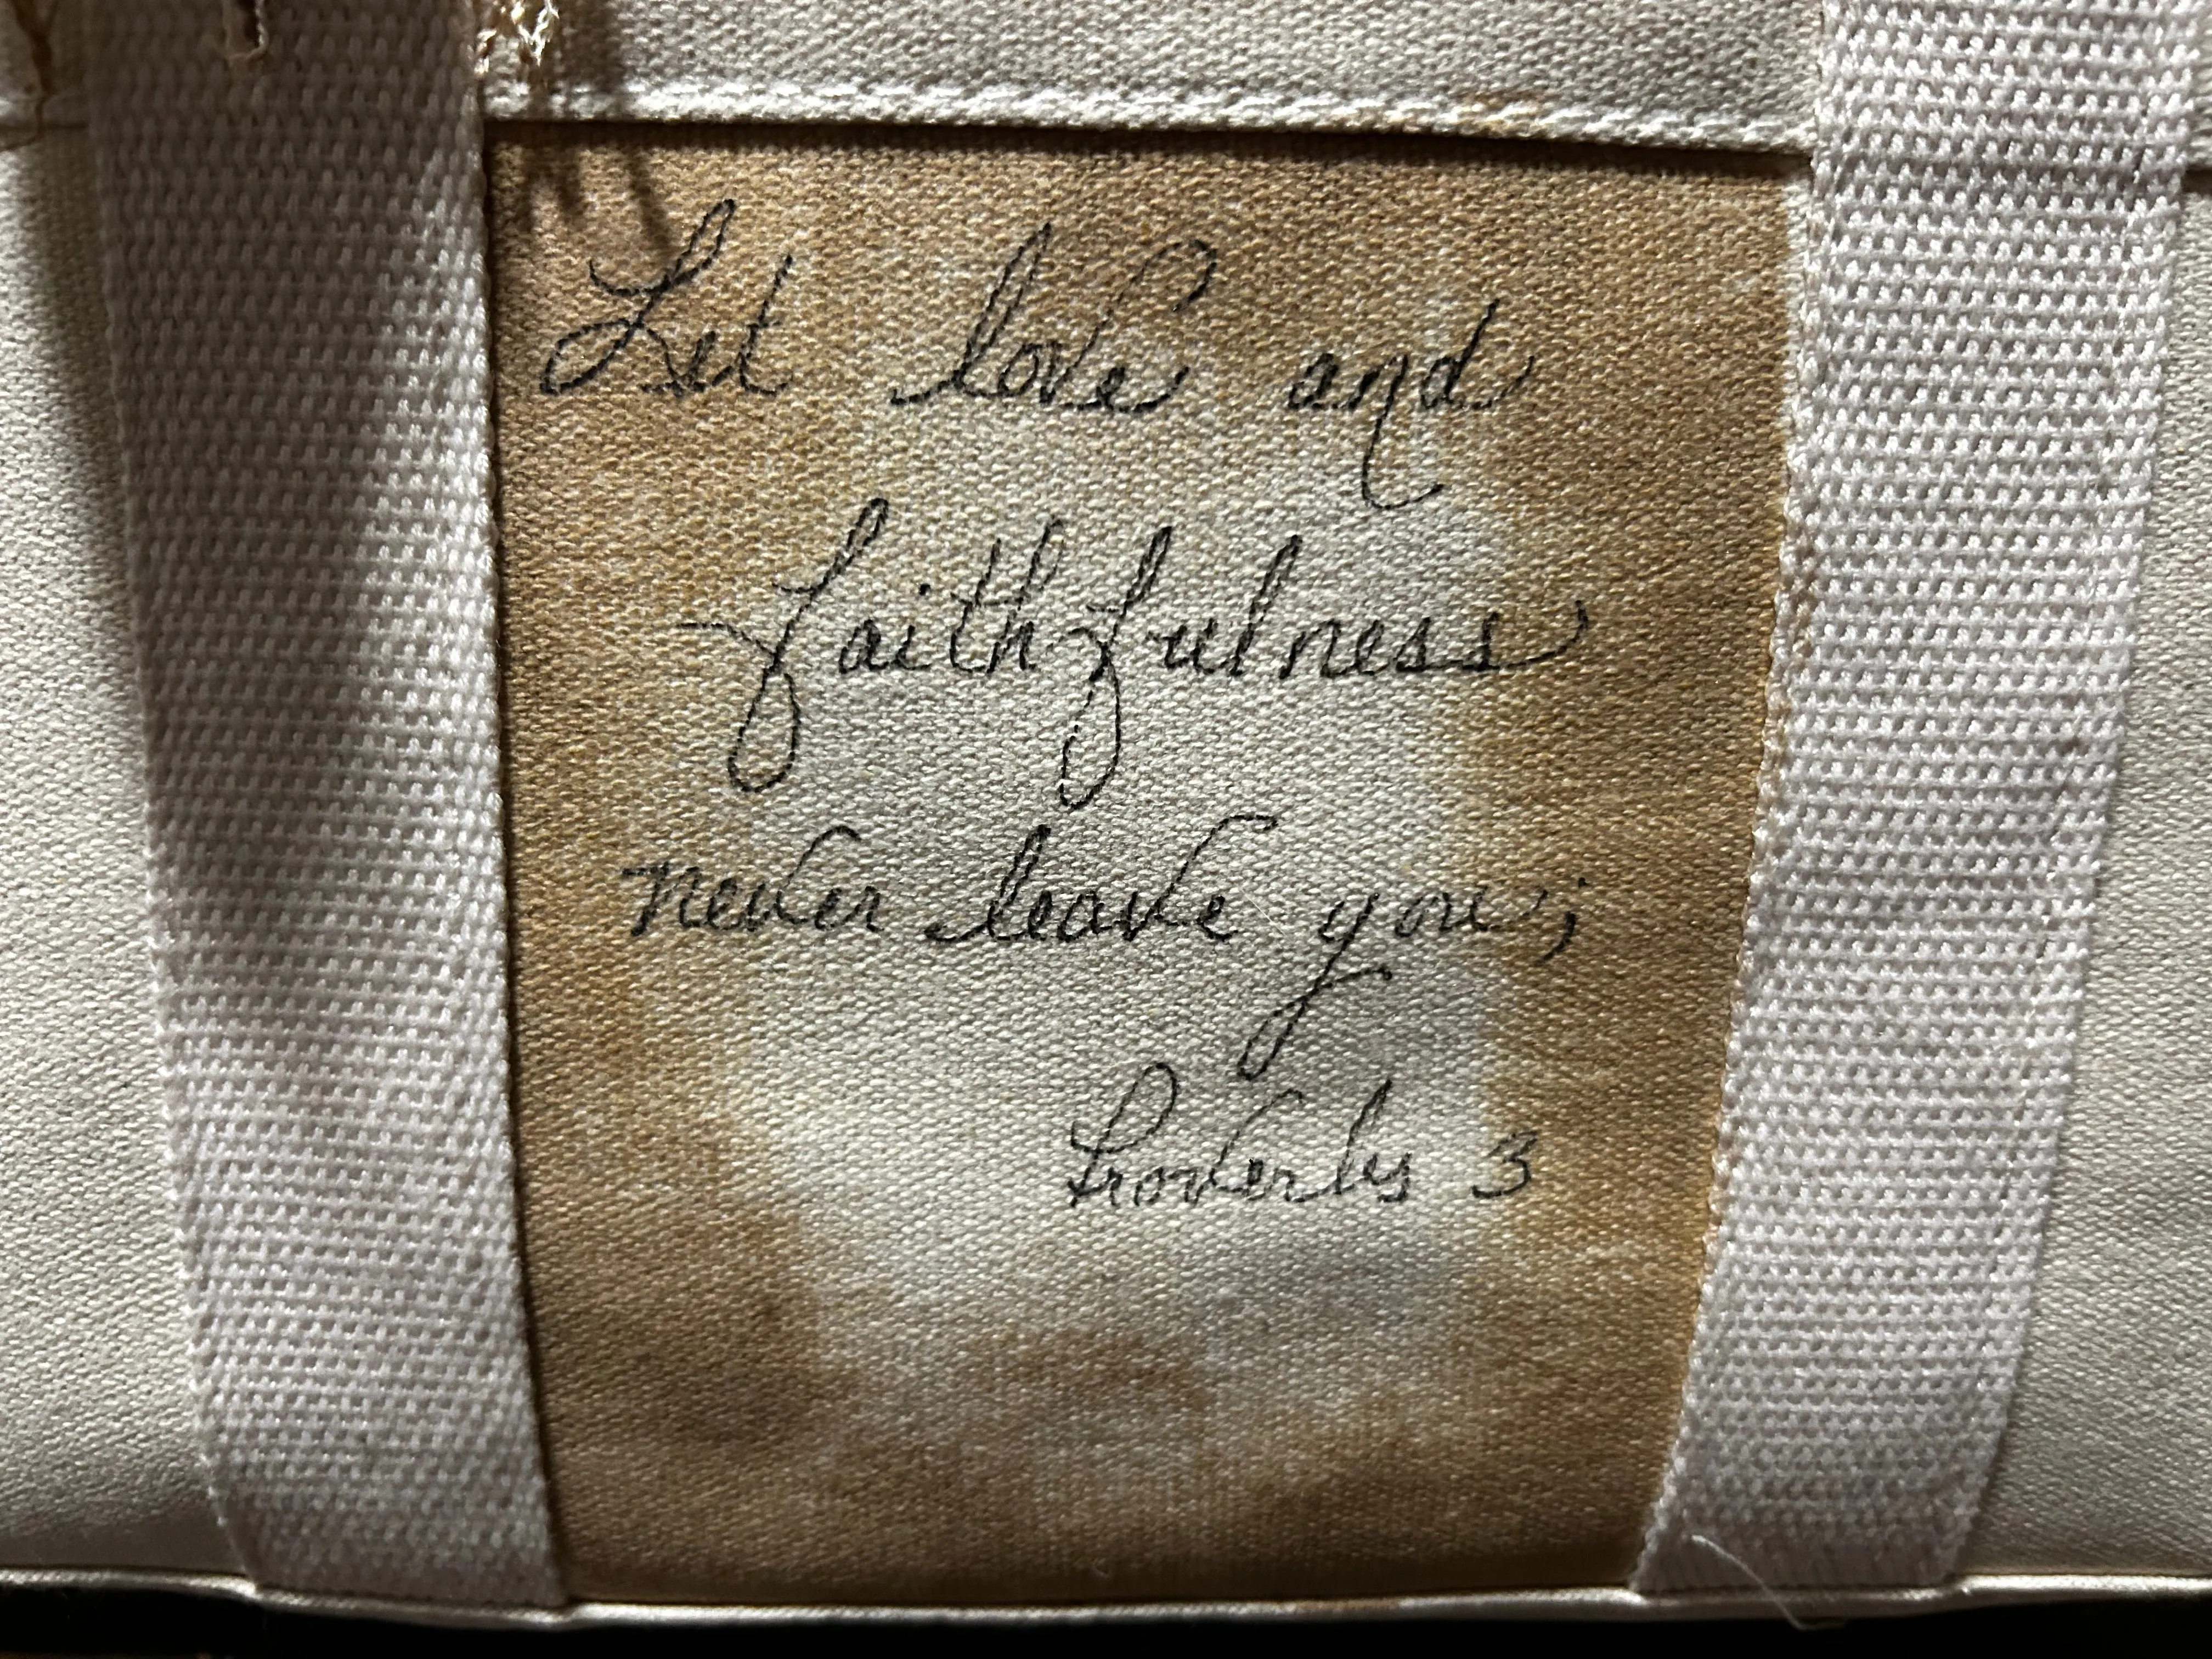 Let love and
faithfulness
never leave you;
Proverbs 3